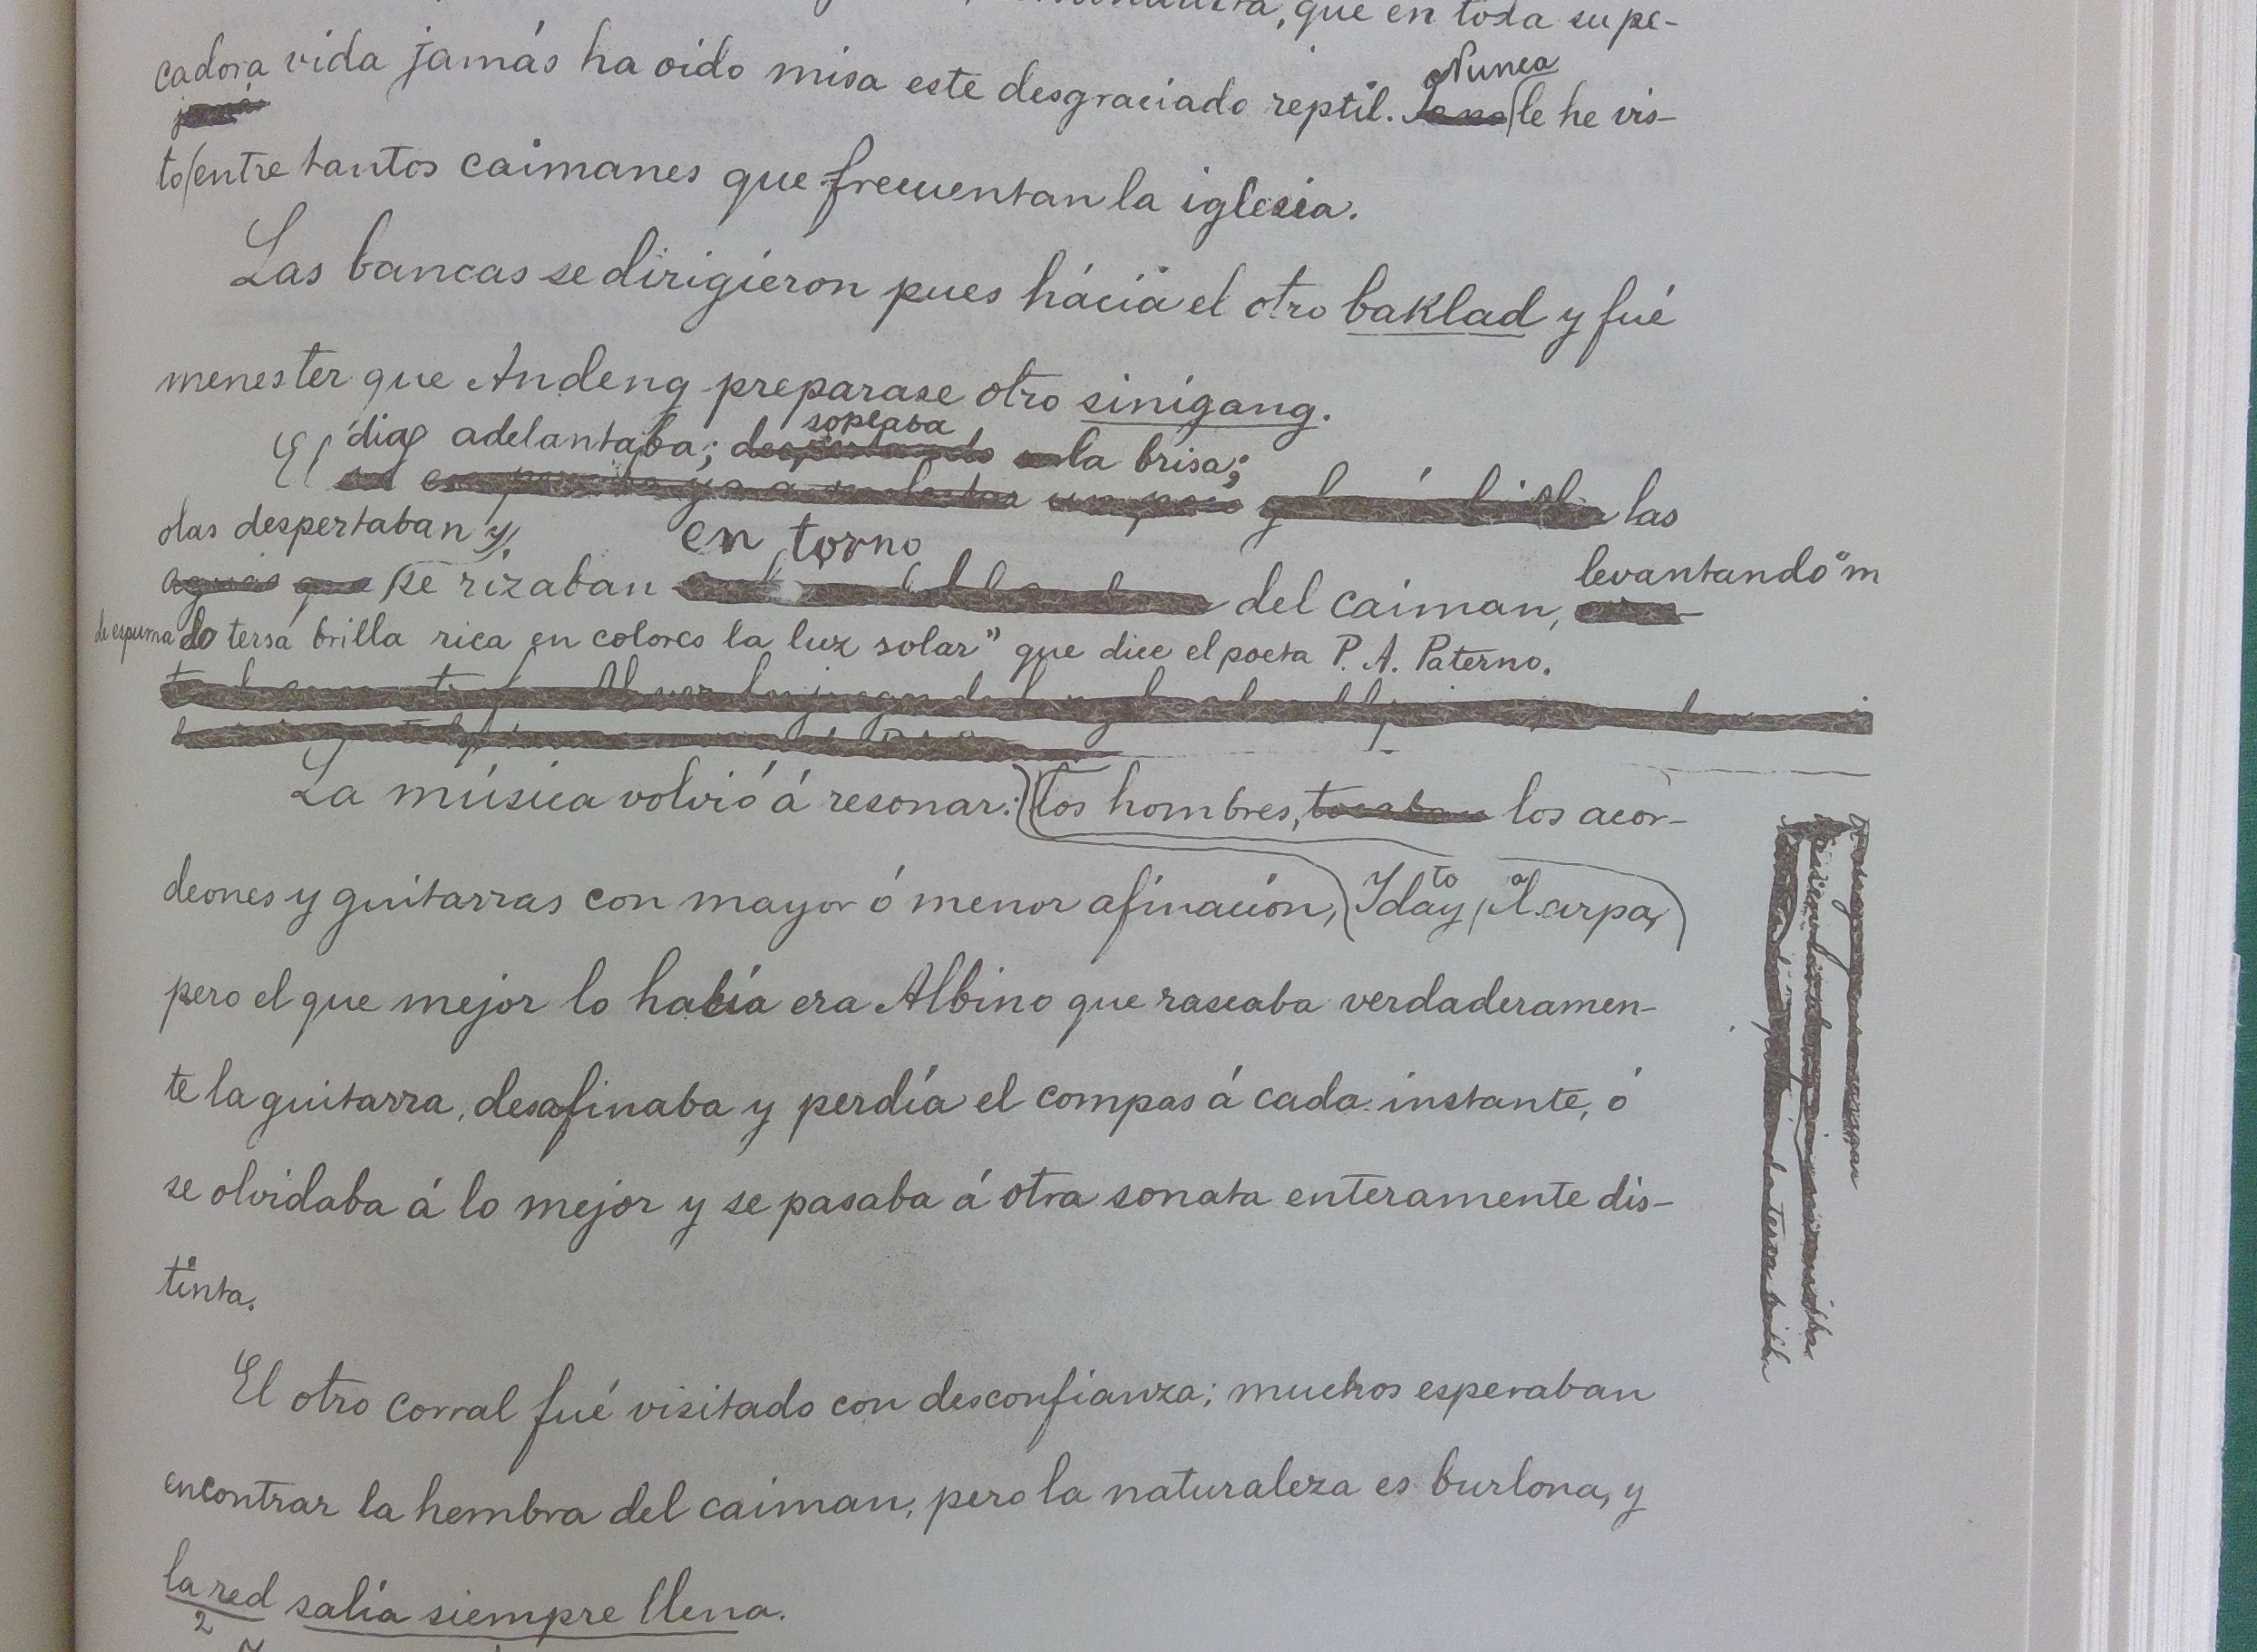 que en toda su pe-
cadora vida jamás ha oido misa este desgraciado reptil. Nunca le he vis-
to entre tantos caimanes que frecuentan la iglesia.
Las bancas se dirigieron pues hácia el otro baklad y fué
menester que Andeng preparase otro sinigang.
El dia adelantaba; soplaba la brisa; las
olas despertaban y se rizaban en torno del caiman, levantando "m
de espuma do tersa brilla rica en colores la luz solar" que dice el poeta P. A. Paterno.
La música volvió á resonar: los hombres, los acor-
deones y guitarras con mayor ó menor afinación, Iday to el arpa,
pero el que mejor lo hacía era Albino que rascaba verdaderamen-
te la guitarra, desafinaba y perdía el compas á cada instante, ó
se olvidaba á lo mejor y se pasaba á otra sonata enteramente dis-
tinta.
El otro corral fué visitado con desconfianza; muchos esperaban
encontrar la hembra del caiman, pero la naturaleza es burlona, y
la red salía siempre llena.
2